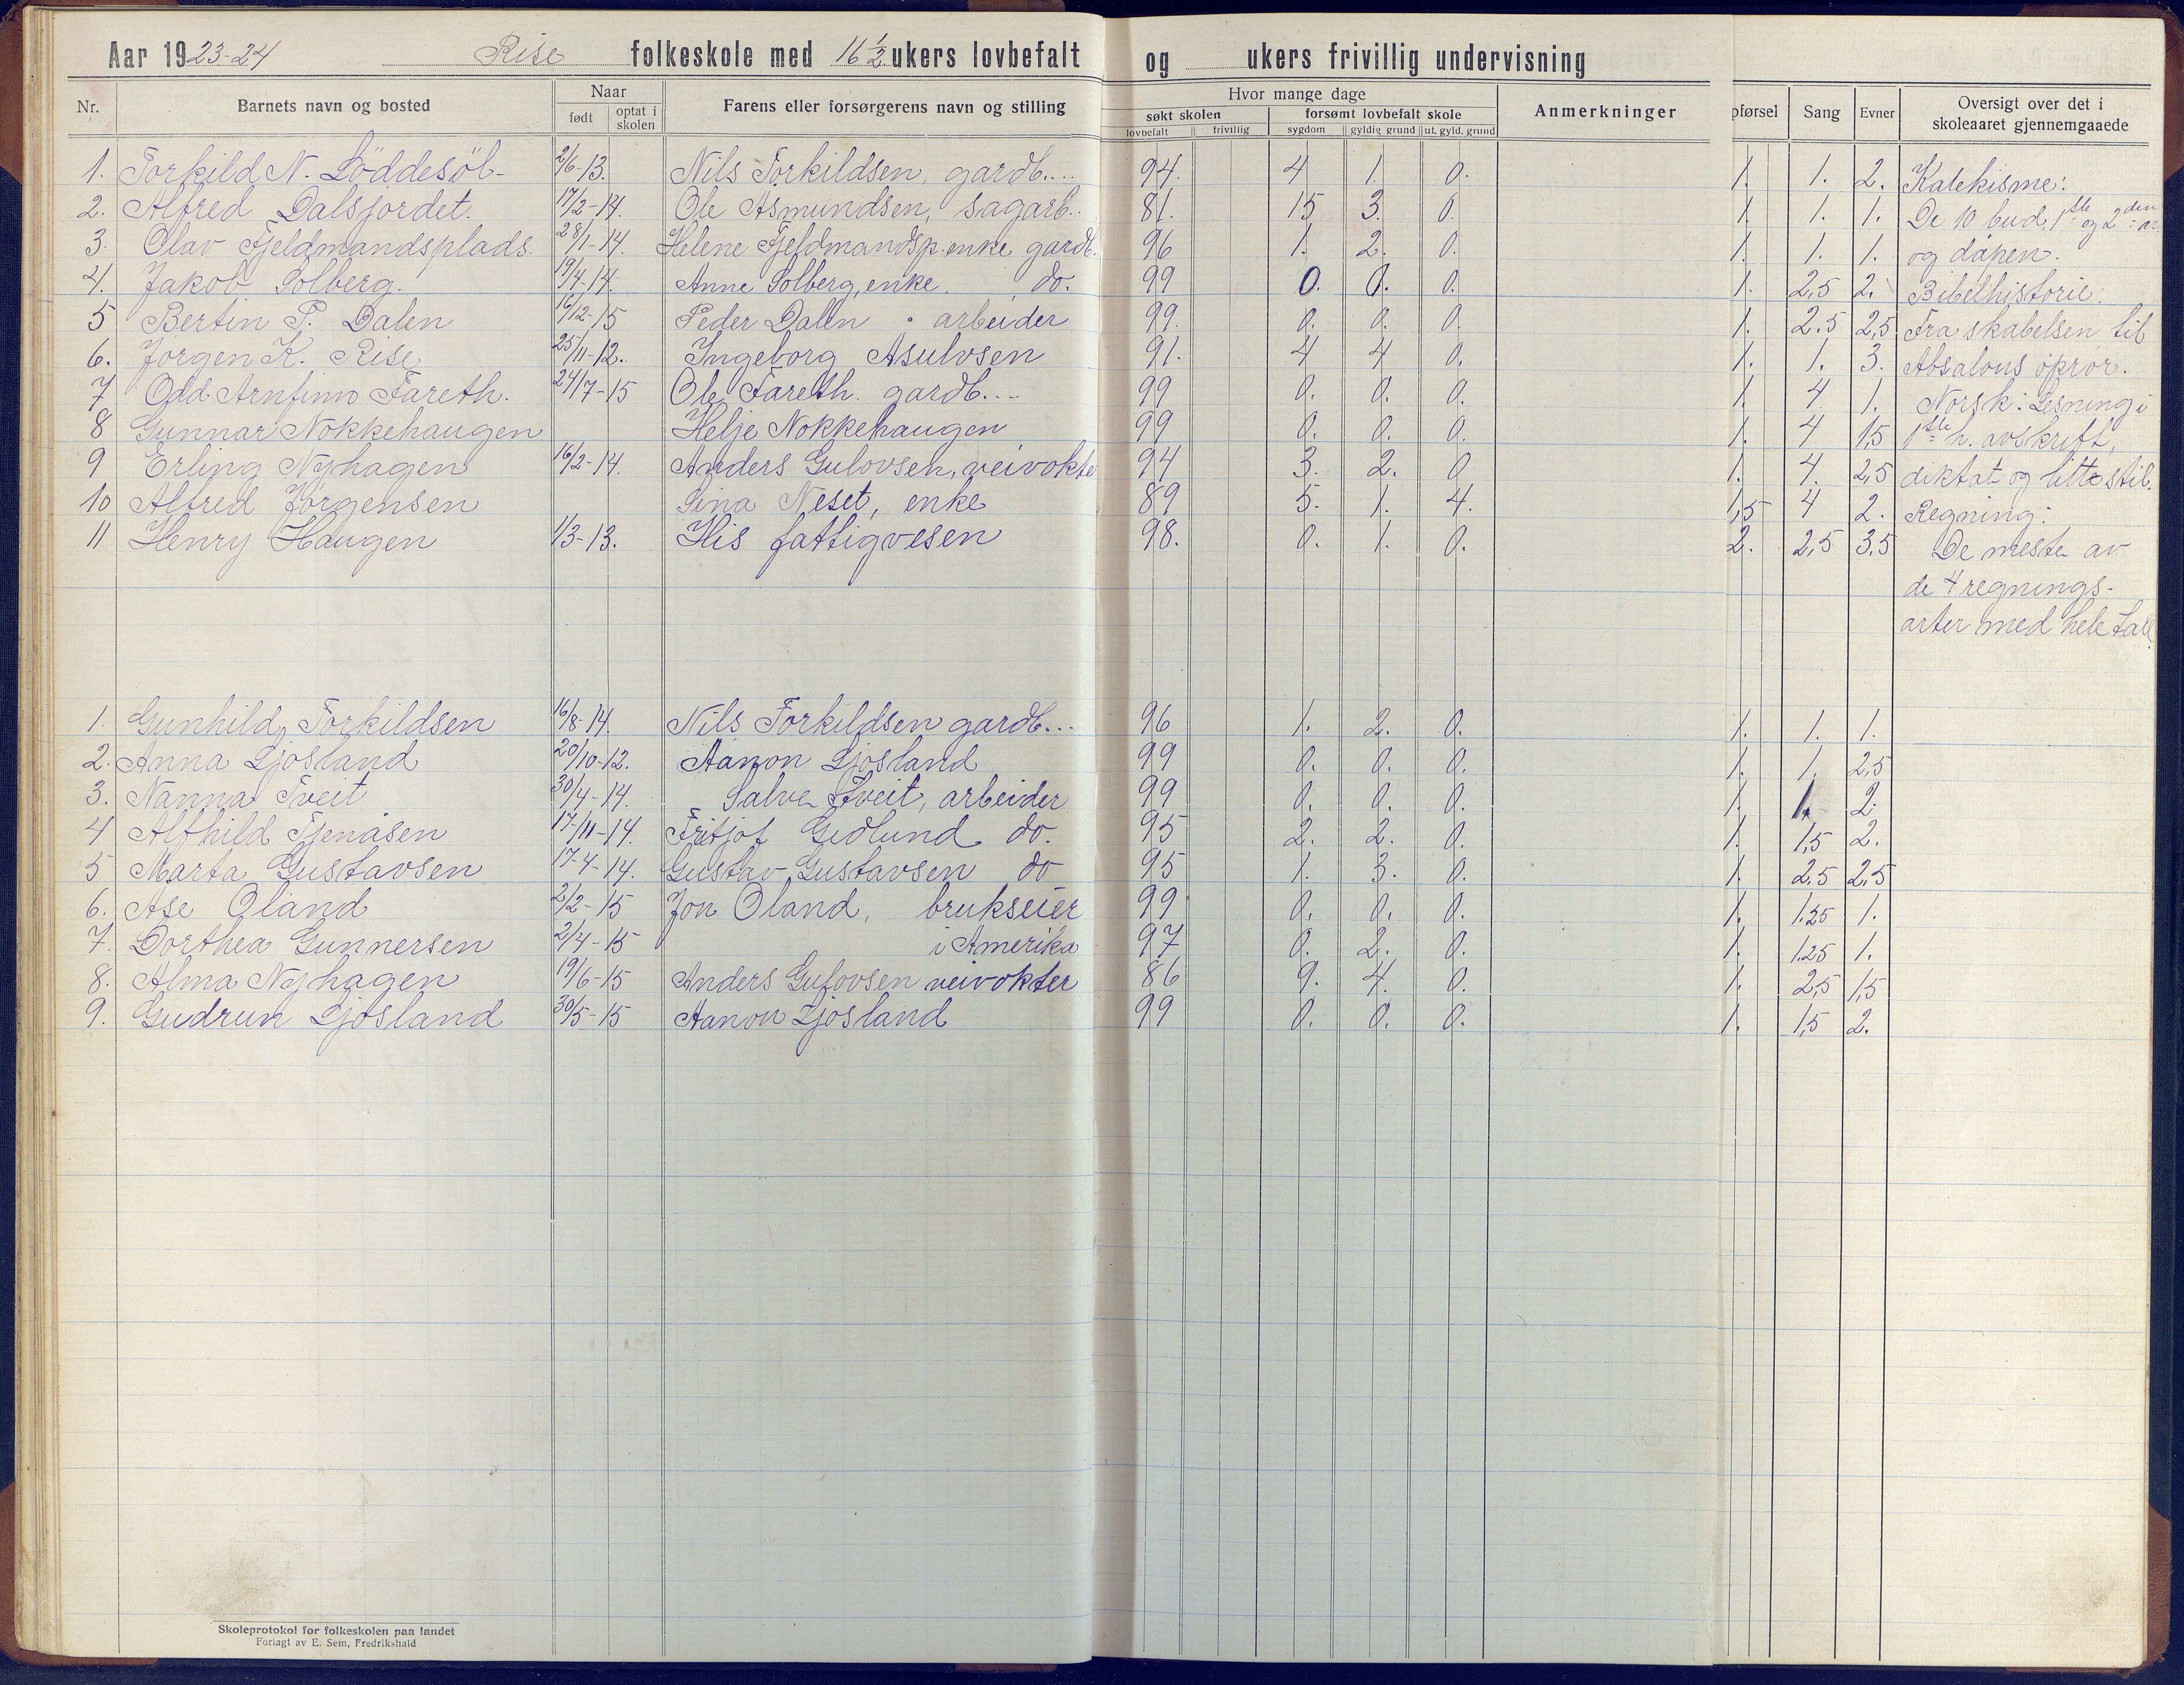 Aar 1923-24 Rise folkeskole med 16 1/2 ukers lovbefalt og ukers frivillig undervisning
Nr. Barnets navn og bosted Naar født optat i skolen Farens eller forsørgerens navn og stilling Hvor mange dage søkt skolen lovbefalt frivillig forsømt lovbefalt skole sygdom gyldig grund ut. gyld. grund Anmerkninger pførsel Sang Evner Oversigt over det i skoleaaret gjennemgaaede
1. Torkild N. Löddesöl- 2/6-13. Nils Torkildsen, gardb.... 94. 4 1. 0. 1. 1. 2. Katekisme:
2. Alfred Dalsjordet. 17/2-14. Ole Asmundsen, sagarb.. 81. 15 3. 0. 1. 1. 1. De 10 bud, 1ste og 2den ar.
3. Olav Fjeldmandsplads. 28/1-14. Helene Fjeldmandsp. enke gardb. 96 1. 2. 0. 1. 1. 1. og dåpen.
4. Jakob Solberg. 19/4-14. Anne Solberg, enke. do. 99 0. 0. 0. 1. 2,5 2. Bibelhistorie:
5 Bertin P. Dalen 16/12-15 Peder Dalen arbeider 99. 0. 0. 0. 1. 2.5 2,5 Fra skabelsen til
6. Jörgen K. Rise 25/11-12. Ingeborg Asulvsen 91. 4 4 0. 1. 1. 3. Absalons oprör.
7 Odd Arnfinn Fareth. 24/7-15 Ole Fareth. gardb.... 99 0. 0. 0. 1. 4. 1. Norsk: Lesning i
8 Gunnar Nokkehaugen Helje Nokkehaugen 99 0. 0. 0. 1. 4 1,5 1ste h. avskrift,
9 Erling Nyhagen 16/2-14. Anders Gulovsen, veivokte 94 3. 2. 0 1. 4. 2,5 diktat og litte stil.
10 Alfred Jörgensen Sina Neset, enke 89 5. 1. 4. 1,5 4 2. Regning:
11 Henry Haugen 1/3-13. His fattigvesen 98. 0. 1. 0. 2. 2,5 3,5 De meste av
de 4 regnings-
arter med hele tall
1. Gunhild Torkildsen 16/8-14. Nils Torkildsen gardb... 96 1. 2. 0. 1. 1. 1.
2. Anna Ljosland 20/10-12. Aanon Ljosland 99 0. 0. 0. 1. 1. 2,5
3. Nanna Tveit 30/4-14. Salve Tveit, arbeider 99 0. 0. 0. 1. 1. 2.
4 Alfhild Tjenåsen 17/11-14. Fritjof Gedlund do. 95 2. 2. 0. 1. 1,5 2.
5 Marta Gustavsen 17-4-14. Gustav Gustavsen do 95 1. 3. 0. 1. 2,5 2,5
6. Ase Öland 2/2-15 Jon Öland, brukseier 99 0. 0. 0. 1. 1.25 1.
7. Dorthea Gunnersen 2/4-15 i Amerika 97 0. 2. 0. 1. 1.25 1.
8. Alma Nyhagen 19/6-15 Anders Gulovsen veivokter 86 9. 4. 0. 1. 2,5 1,5
9. Gudrun Ljosland 30/5-15 Aanon Ljosland 99 0. 0. 0. 1. 1,5 2.
Skoleprotokol for folkeskolen paa landet
Forlagt av E. Sem, Fredrikshald